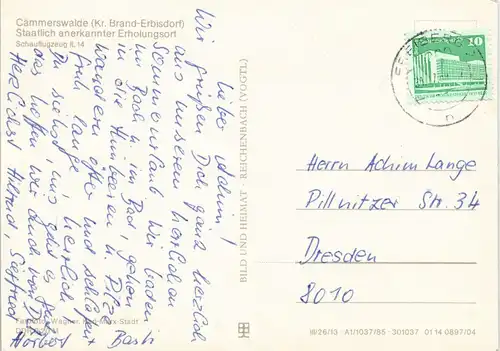 Cämmerswalde (Kr. Brand-Erbisdorf)
Staatlich anerkannter Erholungsort
Schauflugzeug IL 14
Lieber Achim!
Wir grüßen Dich ganz herzlich
aus unserem herrlichen
Sommerurlaub. Wir baden
im Bach u. im Bad, gehen
in die Himbeeren u. Pilze
wandern öfter und schlafen
früh lange
Du siehst, uns geht es
das hoffen wir auch von Dir
Herzlichst Hiltrud, Siegfried
Norbert Basti
BILD UND HEIMAT · REICHENBACH (VOGTL)
FREIBERG
10
Herrn Achim Lange
Pillnitzer Str. 34
Dresden
8010
Wagner, Karl-Marx-Stadt
W/26/13 A1/1037/85 301037 01 14 0897/04